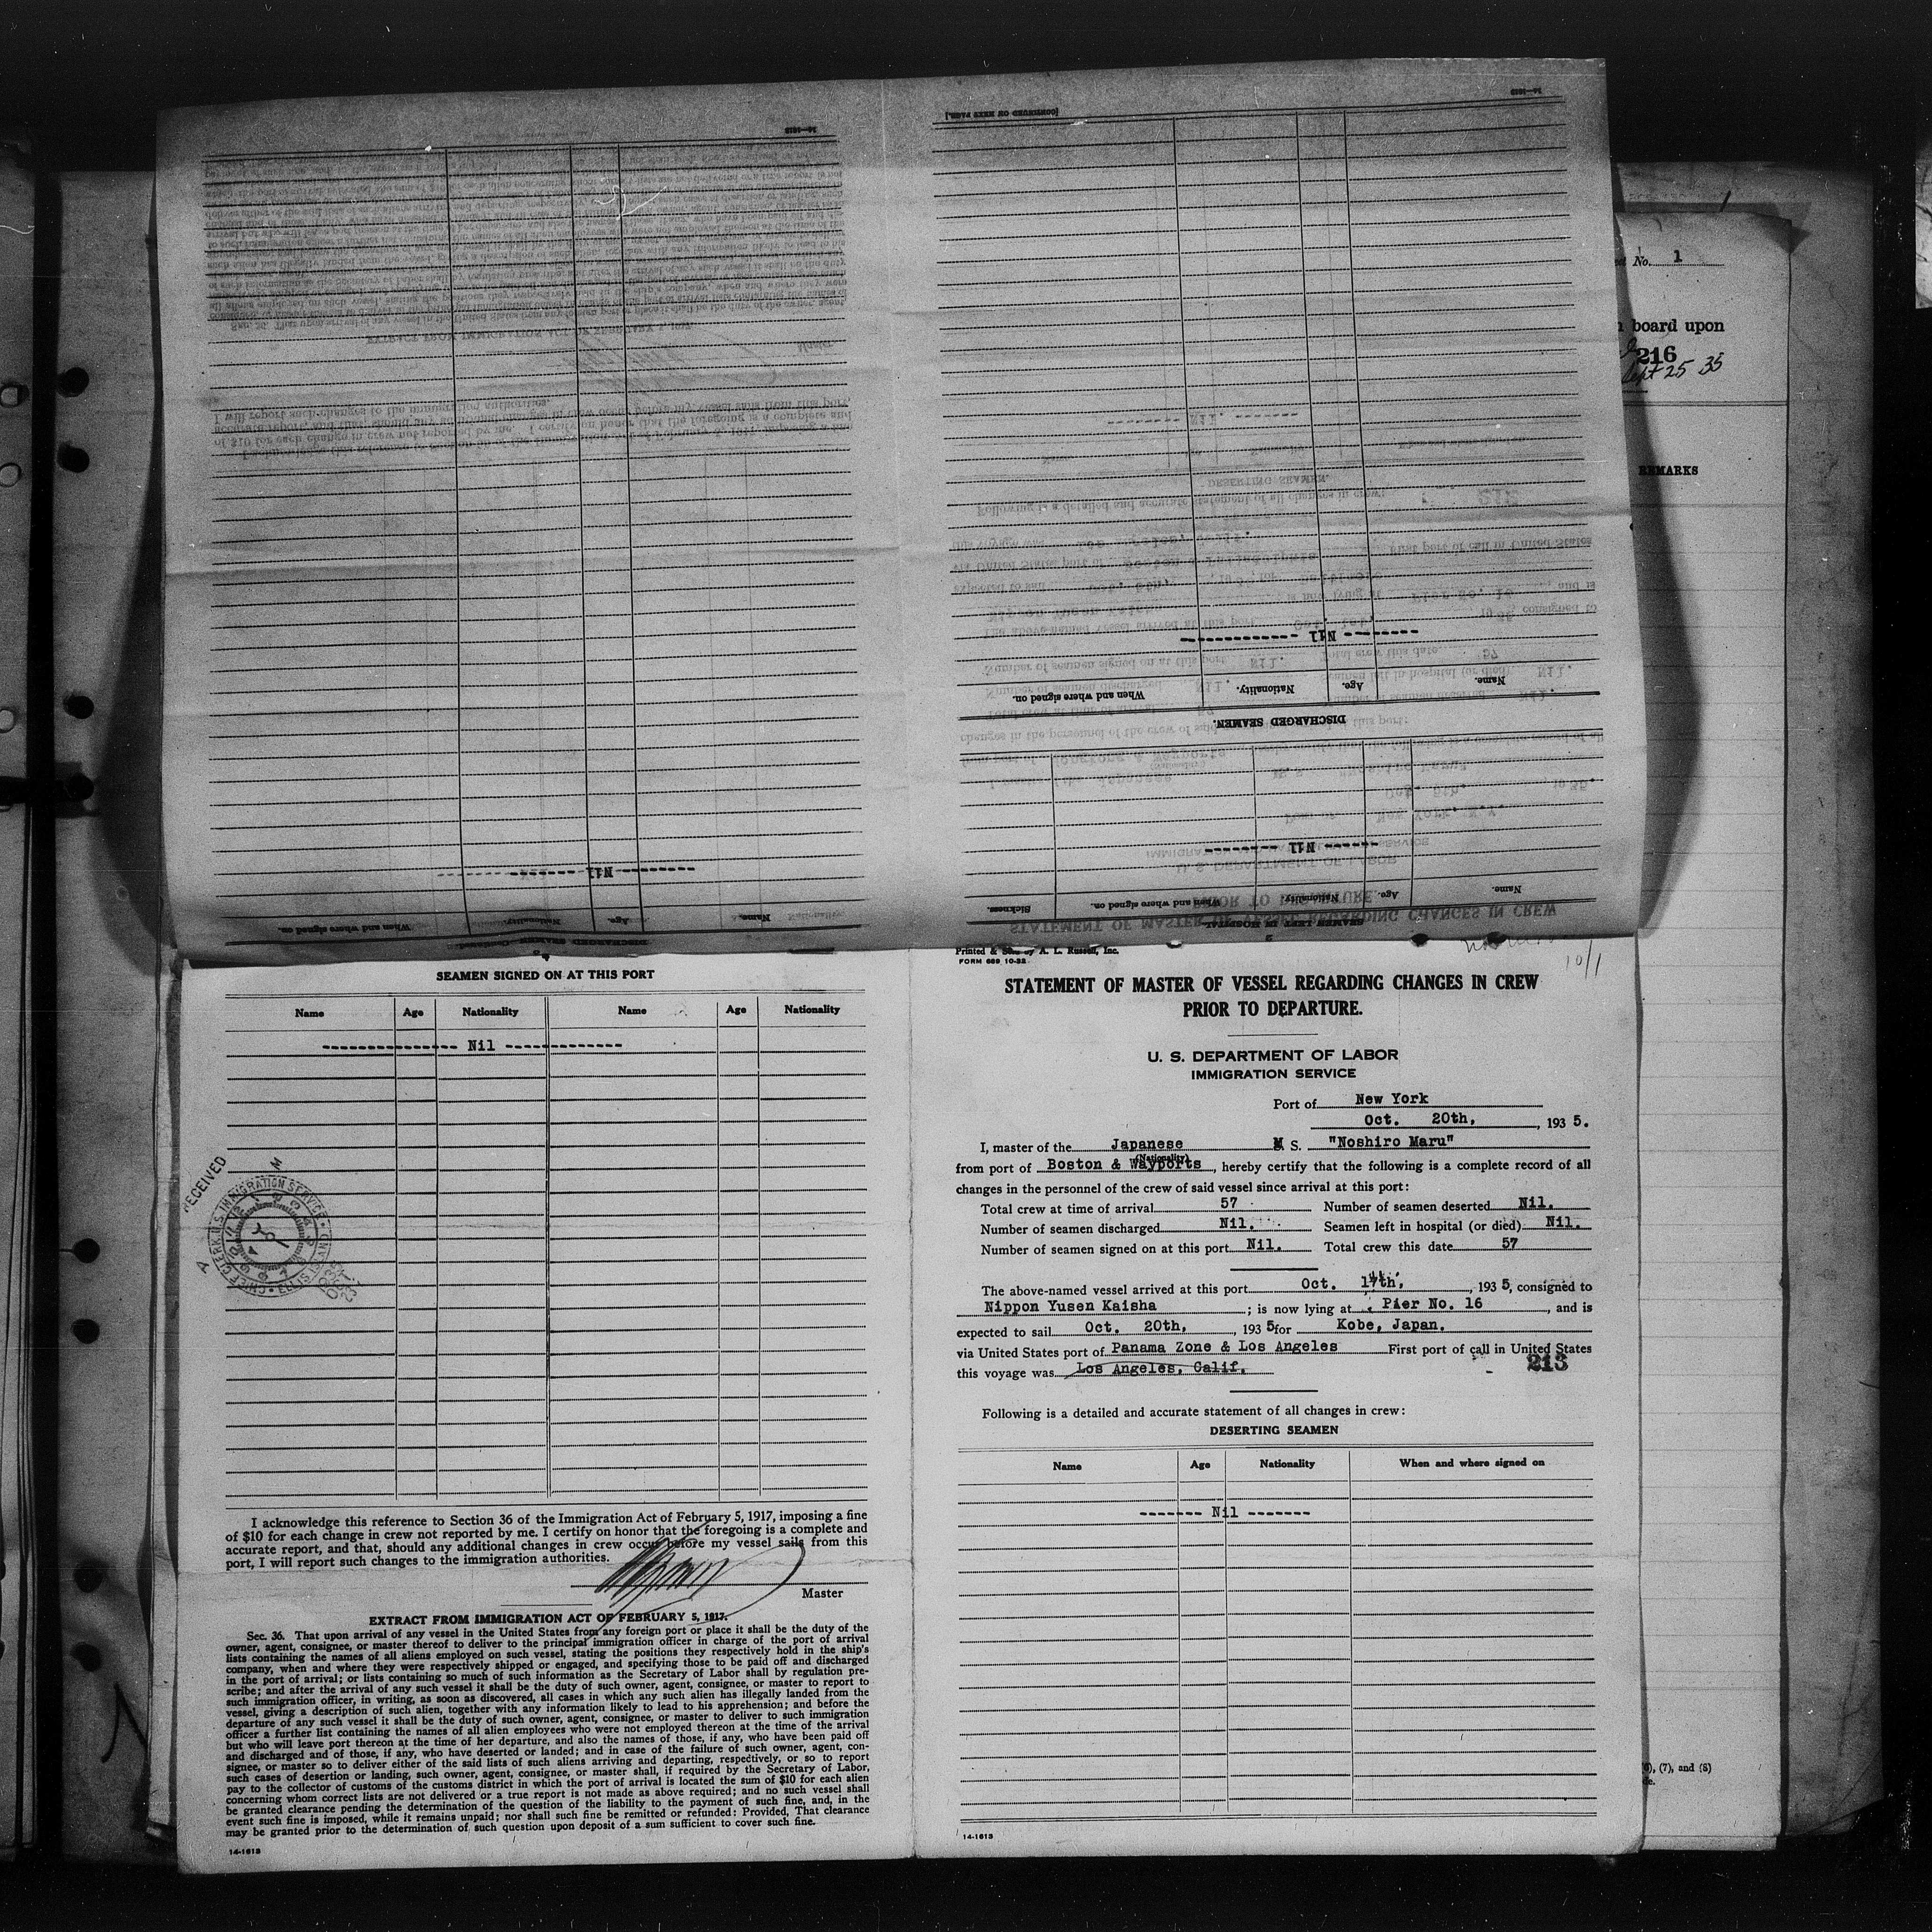 No. 1
board upon
216
Sept 25 35
REMARKS
(7), and (8)
14-1613
14-1613
[CONTINUED ON NEXT PAGE.]
Nil
When and where signed on. Nationality. Age. Name.
DISCHARGED SEAMEN.
Nil
Sickness. When and where signed on. Nationality. Age. Name.
SEAMEN LEFT IN HOSPITAL
Nil
When and where signed on. Nationality. Age. Name.
DISCHARGED SEAMEN—Continued.
SEAMEN SIGNED ON AT THIS PORT
Name Age Nationality Name Age Nationality
Nil
RECEIVED
CHIEF CLERK U.S. IMMIGRATION SERVICE
ELLIS ISLAND
I acknowledge this reference to Section 36 of the Immigration Act of February 5, 1917, imposing a fine
of $10 for each change in crew not reported by me. I certify on honor that the foregoing is a complete and
accurate report, and that, should any additional changes in crew occur before my vessel sails from this
port, I will report such changes to the immigration authorities.
Master
EXTRACT FROM IMMIGRATION ACT OF FEBRUARY 5, 1917.
Sec. 36. That upon arrival of any vessel in the United States from any foreign port or place it shall be the duty of the
owner, agent, consignee, or master thereof to deliver to the principal immigration officer in charge of the port of arrival
lists containing the names of all aliens employed on such vessel, stating the positions they respectively hold in the ship's
company, when and where they were respectively shipped or engaged, and specifying those to be paid off and discharged
in the port of arrival; or lists containing so much of such information as the Secretary of Labor shall by regulation pre-
scribe; and after the arrival of any such vessel it shall be the duty of such owner, agent, consignee, or master to report to
such immigration officer, in writing, as soon as discovered, all cases in which any such alien has illegally landed from the
vessel, giving a description of such alien, together with any information likely to lead to his apprehension; and before the
departure of any such vessel it shall be the duty of such owner, agent, consignee, or master to deliver to such immigration
officer a further list containing the names of all alien employees who were not employed thereon at the time of the arrival
but who will leave port thereon at the time of her departure, and also the names of those, if any, who have been paid off
and discharged and of those, if any, who have deserted or landed; and in case of the failure of such owner, agent, con-
signee, or master so to deliver either of the said lists of such aliens arriving and departing, respectively, or so to report
such cases of desertion or landing, such owner, agent, consignee, or master shall, if required by the Secretary of Labor,
pay to the collector of customs of the customs district in which the port of arrival is located the sum of $10 for each alien
concerning whom correct lists are not delivered or a true report is not made as above required; and no such vessel shall
be granted clearance pending the determination of the question of the liability to the payment of such fine, and, in the
event such fine is imposed, while it remains unpaid; nor shall such fine be remitted or refunded: Provided, That clearance
may be granted prior to the determination of such question upon deposit of a sum sufficient to cover such fine.
14-1613
Printed & Sold by A. L. Russell, Inc.
FORM 689 10-32
10/1
STATEMENT OF MASTER OF VESSEL REGARDING CHANGES IN CREW
PRIOR TO DEPARTURE.
U. S. DEPARTMENT OF LABOR
IMMIGRATION SERVICE
Port of New York
Oct. 20th, 1935.
I, master of the Japanese M S. "Noshiro Maru"
(Nationality)
from port of Boston & Wayports, hereby certify that the following is a complete record of all
changes in the personnel of the crew of said vessel since arrival at this port:
Total crew at time of arrival 57 Number of seamen deserted Nil.
Number of seamen discharged Nil. Seamen left in hospital (or died) Nil.
Number of seamen signed on at this port Nil. Total crew this date 57
The above-named vessel arrived at this port Oct. 17th, 1935, consigned to
Nippon Yusen Kaisha; is now lying at Pier No. 16, and is
expected to sail Oct. 20th, 1935 for Kobe, Japan.
via United States port of Panama Zone & Los Angeles First port of call in United States
this voyage was Los Angeles, Calif.
213
Following is a detailed and accurate statement of all changes in crew:
DESERTING SEAMEN
Name Age Nationality When and where signed on
Nil
14-1613